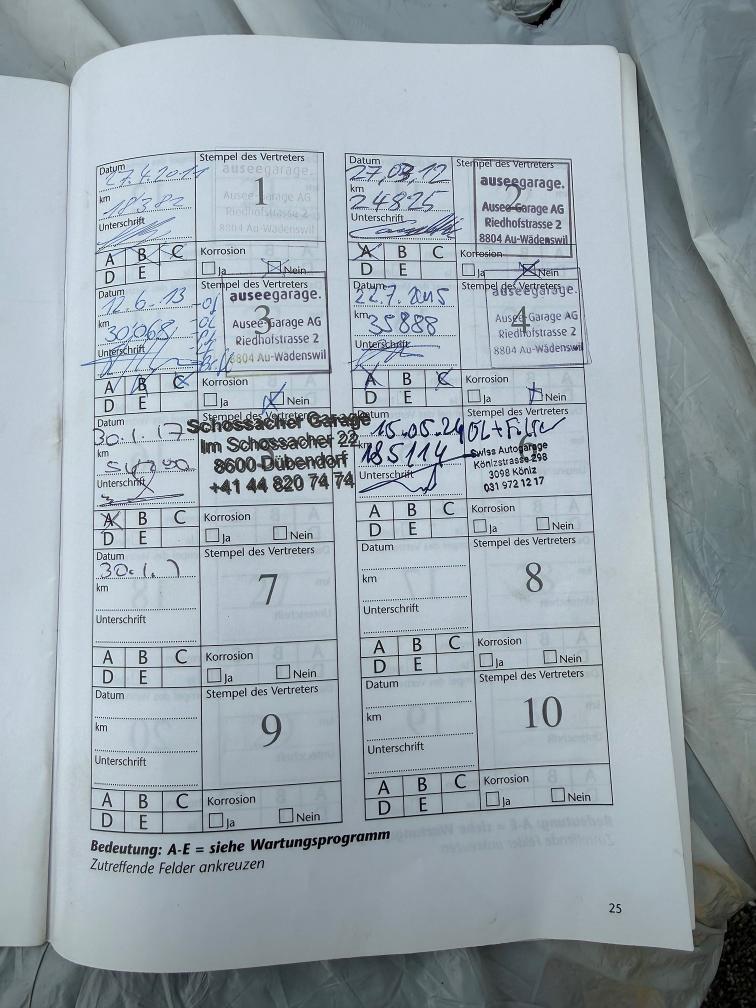 Datum
27.4.2011
km
18382
Unterschrift
Stempel des Vertreters
1
auseegarage.
Ausee-Garage AG
Riedhofstrasse 2
8804 Au-Wädenswil
A B C
D E
Korrosion
Ja Nein
Datum
27.03.12
km
24825
Unterschrift
Stempel des Vertreters
2
auseegarage.
Ausee-Garage AG
Riedhofstrasse 2
8804 Au-Wädenswil
A B C
D E
Korrosion
Ja Nein
Datum
12.6.13
km
30068
Unterschrift
Stempel des Vertreters
3
auseegarage.
Ausee-Garage AG
Riedhofstrasse 2
8804 Au-Wädenswil
A B C
D E
Korrosion
Ja Nein
Datum
22.7.2015
km
35888
Unterschrift
Stempel des Vertreters
4
auseegarage.
Ausee-Garage AG
Riedhofstrasse 2
8804 Au-Wädenswil
A B C
D E
Korrosion
Ja Nein
Datum
30.1.17
km
Unterschrift
Stempel des Vertreters
Schossacher Garage
Im Schossacher 22
8600 Dübendorf
+41 44 820 74 74
A B C
D E
Korrosion
Ja Nein
Datum
15.05.24
km
185114
Unterschrift
Stempel des Vertreters
ÖL+Filter
6
Swiss Autogarage
Könizstrasse 298
3098 Köniz
031 972 12 17
A B C
D E
Korrosion
Ja Nein
Datum
30.1.
km
Unterschrift
Stempel des Vertreters
7
A B C
D E
Korrosion
Ja Nein
Datum
km
Unterschrift
Stempel des Vertreters
8
A B C
D E
Korrosion
Ja Nein
Datum
km
Unterschrift
Stempel des Vertreters
9
A B C
D E
Korrosion
Ja Nein
Datum
km
Unterschrift
Stempel des Vertreters
10
A B C
D E
Korrosion
Ja Nein
Bedeutung: A-E = siehe Wartungsprogramm
Zutreffende Felder ankreuzen
25